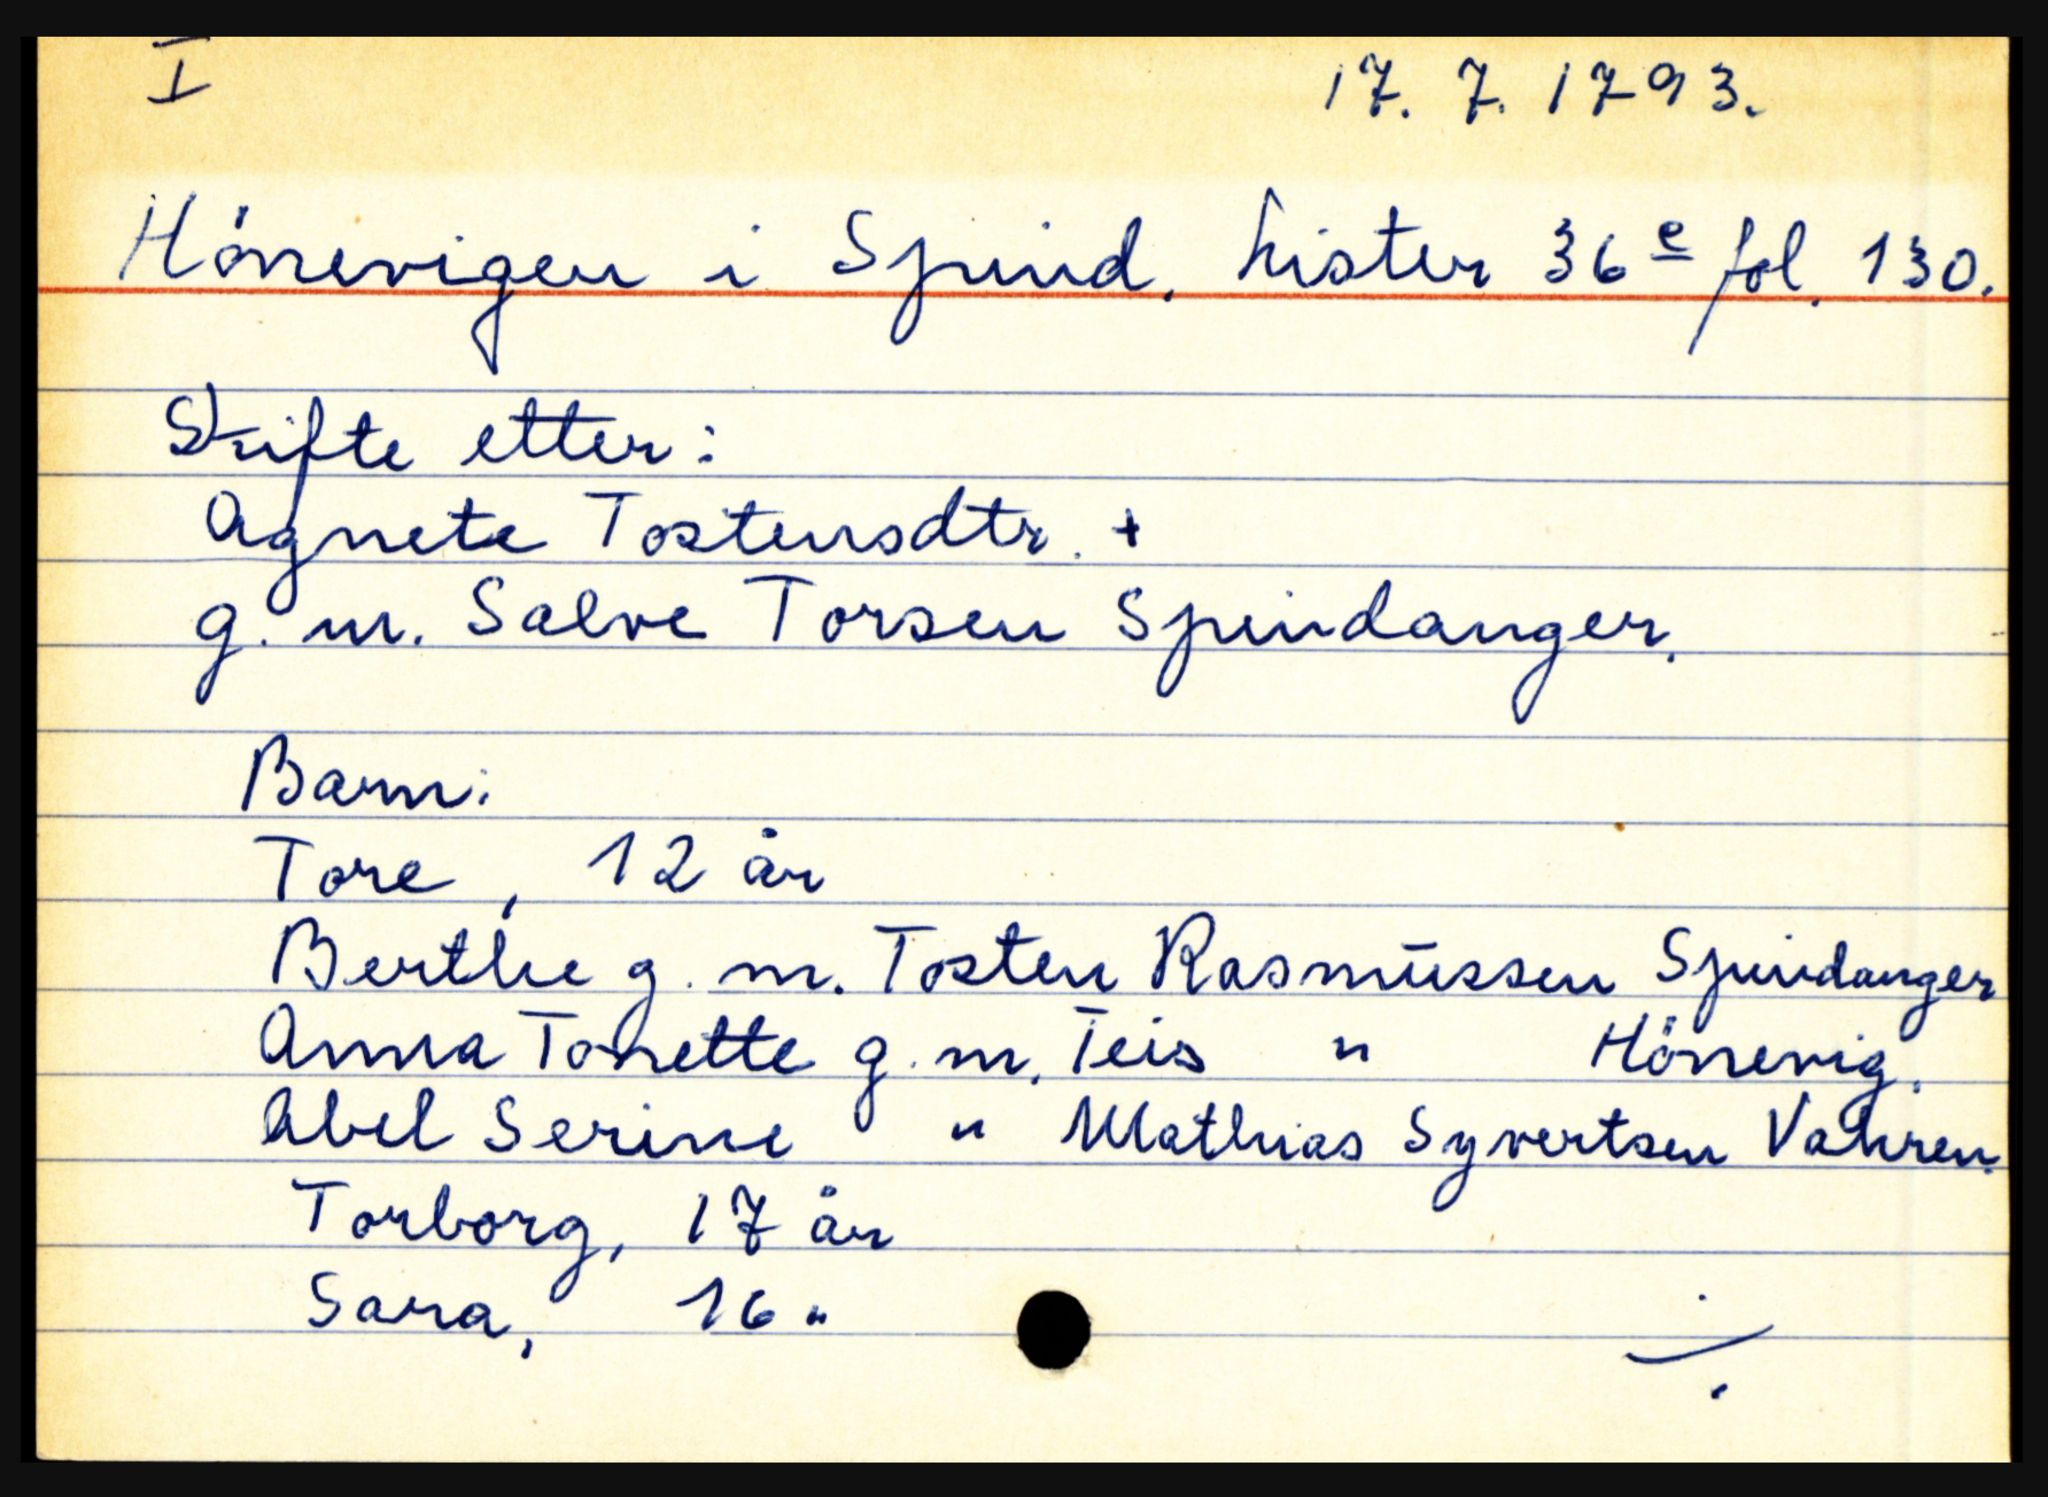 I 17. 7. 1793.
Hönevigen i Spind. Lister 36e fol. 130.
Skifte etter:
Agnete Tostensdtr. +
g. m. Salve Torsen Spindanger.
Barn:
Tore, 12 år
Berthe g. m. Tosten Rasmussen Spindanger
Anna Tonette g. m. Teis " Hönevig.
Abel Serine " Mathias Syvertsen Vahren.
Torborg, 17 år
Sara, 16 "